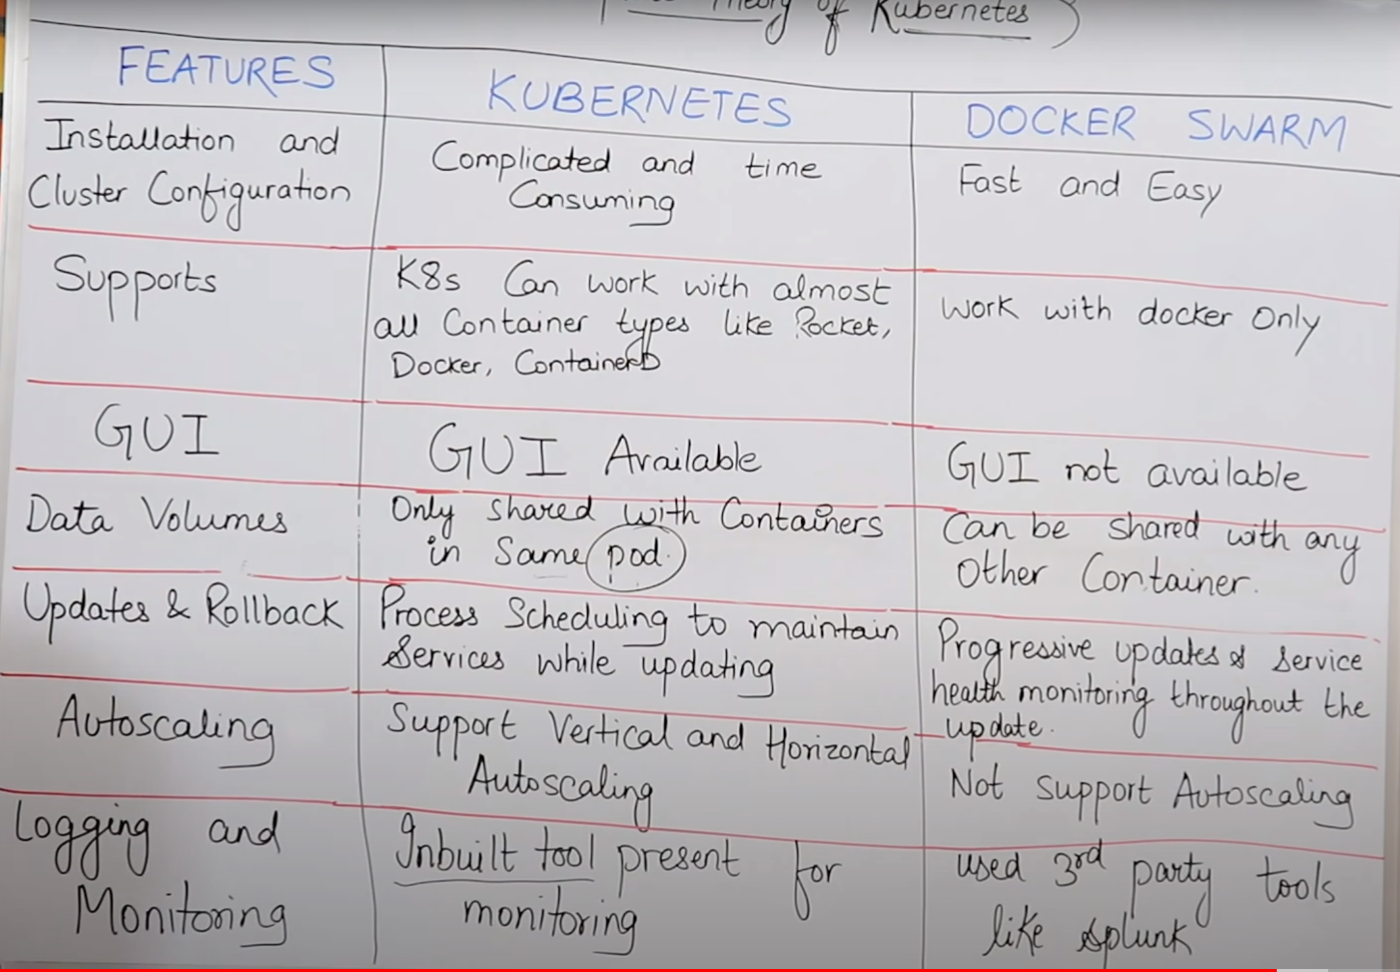 Theory of Kubernetes)
FEATURES
KUBERNETES
DOCKER SWARM
Installation and
Cluster Configuration
Complicated and time
Consuming
Fast and Easy
Supports
K8s Can work with almost
all Container types like Rocket,
Docker, ContainerD
work with docker Only
GUI
GUI Available
GUI not available
Data Volumes
Only shared with Containers
in Same pod.
Can be shared with any
Other Container.
Updates & Rollback
Process Scheduling to maintain
Services while updating
Progressive updates & Service
health monitoring throughout the
update.
Autoscaling
Support Vertical and Horizontal
Autoscaling
Not support Autoscaling
Logging and
Monitoring
Inbuilt tool present for
monitoring
used 3rd party tools
like splunk